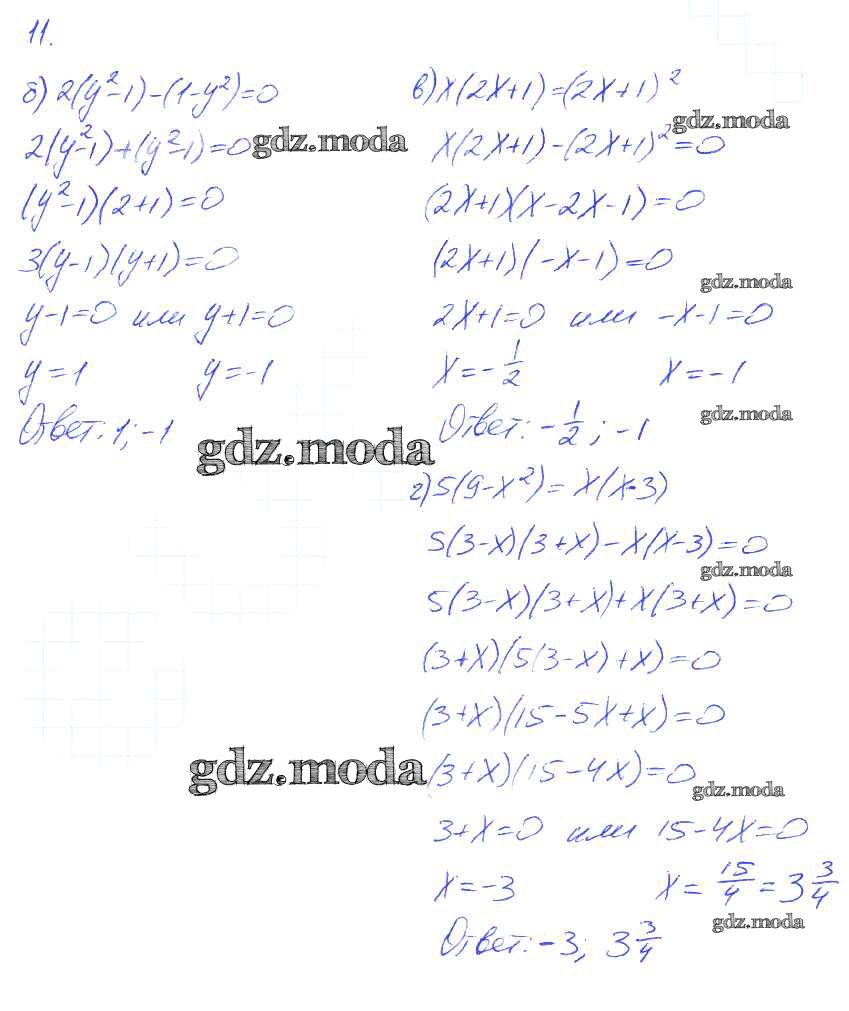 11.
б) 2(y²-1)-(1-y²)=0
2(y²-1)+(y²-1)=0
gdz.moda
(y²-1)(2+1)=0
3(y-1)(y+1)=0
y-1=0 или y+1=0
y=1 y=-1
Ответ: 1; -1
gdz.moda
в) x(2x+1)=(2x+1)²
gdz.moda
x(2x+1)-(2x+1)²=0
(2x+1)(x-2x-1)=0
(2x+1)(-x-1)=0
gdz.moda
2x+1=0 или -x-1=0
x=-1/2 x=-1
gdz.moda
Ответ: -1/2; -1
г) 5(9-x²)=x(x-3)
5(3-x)(3+x)-x(x-3)=0
gdz.moda
5(3-x)(3+x)+x(3+x)=0
(3+x)(5(3-x)+x)=0
(3+x)(15-5x+x)=0
gdz.moda
(3+x)(15-4x)=0
gdz.moda
3+x=0 или 15-4x=0
x=-3 x=15/4=3 3/4
gdz.moda
Ответ: -3; 3 3/4